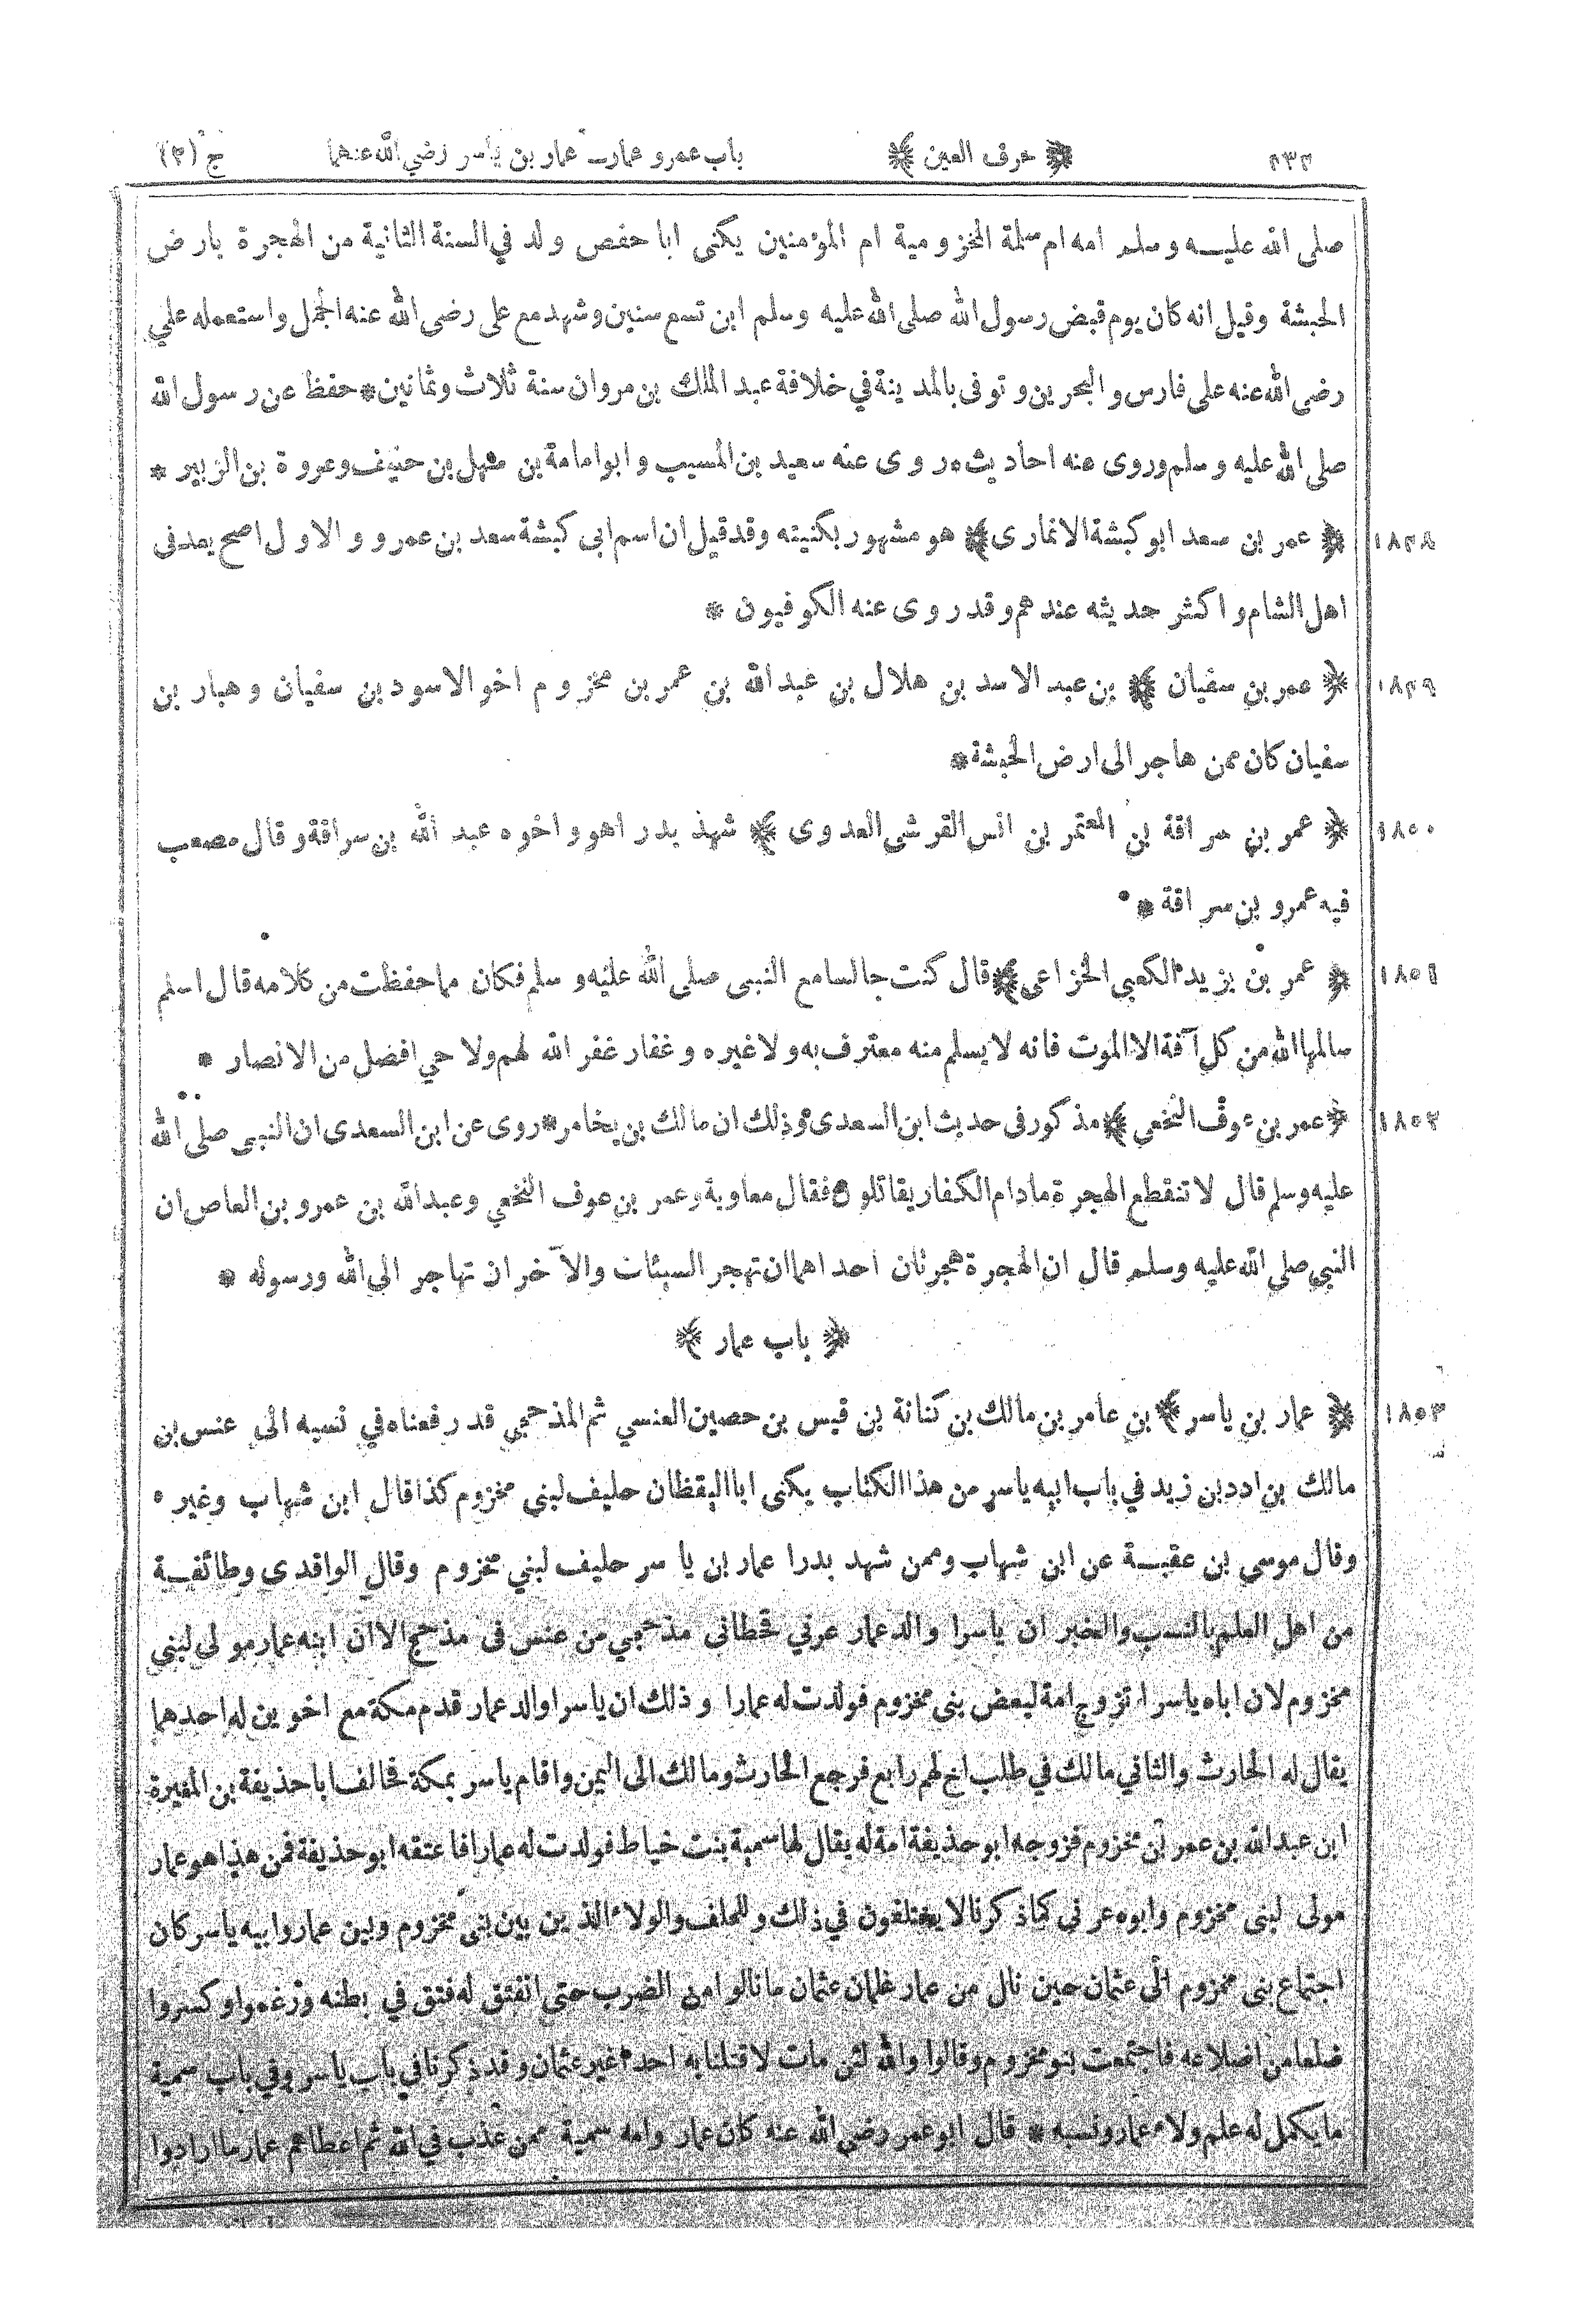 ٤٣٢ ﴿ حرف العين ﴾ باب عمرو عمار ــ عمار بن ياسر رضي الله عنهما ج (٢)
صلى الله عليــه وسلم امه ام سلمة المخزومية ام المؤمنين يكنى ابا حفص ولد في السنة الثانية من الهجرة بارض
الحبشة وقيل انه كان يوم قبض رسول الله صلى الله عليه وسلم ابن تسع سنين وشهد مع على رضى الله عنه الجمل واستعمله علي
رضى الله عنه على فارس والبحرين وتوفى بالمدينة في خلافة عبد الملك بن مروان سنة ثلاث وثمانين * حفظ عن رسول الله
صلى الله عليه وسلم وروى عنه احاديث وروى عنه سعيد بن المسيب وابو امامة بن سهل بن حنيف وعروة بن الزبير *
١٨٤٨ ﴿ عمر بن سعد ابو كبشة الانمارى ﴾ هو مشهور بكنيته وقد قيل ان اسم ابى كبشة سعد بن عمرو والاول اصح يعد فى
اهل الشام واكثر حديثه عندهم وقد روى عنه الكوفيون *
١٨٤٩ ﴿ عمر بن سفيان ﴾ بن عبد الاسد بن هلال بن عبد الله بن عمر بن مخزوم اخو الاسود بن سفيان وهبار بن
سفيان كان ممن هاجر الى ارض الحبشة *
١٨٥٠ ﴿ عمر بن سراقة بن المعتمر بن انس القرشى العدوى ﴾ شهد بدرا هو واخوه عبد الله بن سراقة وقال مصعب
فيه عمرو بن سراقة *
١٨٥١ ﴿ عمر بن يزيد الكعبي الخزاعى ﴾ قال كنت جالسا مع النبى صلى الله عليه وسلم فكان مما حفظت من كلامه قال اسلم
سالمها الله من كل آفة الا الموت فانه لا يسلم منه معترف به ولا غيره وغفار غفر الله لهم ولا حي افضل من الانصار *
١٨٥٢ ﴿ عمر بن عوف النخعي ﴾ مذكور فى حديث ابن السعدى وذلك ان مالك بن يخامر * روى عن ابن السعدى ان النبى صلى الله
عليه وسلم قال لا تنقطع الهجرة مادام الكفار يقاتلون فقال معاوية وعمر بن عوف النخعي وعبد الله بن عمرو بن العاص ان
النبي صلى الله عليه وسلم قال ان الهجرة هجرتان احداهما ان تهجر السيئات والآخر ان تهاجر الى الله ورسوله *
﴿ باب عمار ﴾
١٨٥٣ ﴿ عمار بن ياسر ﴾ بن عامر بن مالك بن كنانة بن قيس بن حصين العنسي ثم المذحجي قد رفعناه في نسبه الى عنس بن
مالك بن ادد بن زيد في باب ابيه ياسر من هذا الكتاب يكنى ابا اليقظان حليف لبني مخزوم كذا قال ابن شهاب وغيره
وقال موسى بن عقبــة عن ابن شهاب وممن شهد بدرا عمار بن ياسر حليف لبني مخزوم وقال الواقدى وطائفــة
من اهل العلم بالنسب والخبر ان ياسرا والد عمار عرني قحطانى مذحجي من عنس فى مذحج الا ان ابنه عمار مولى لبنى
مخزوم لان اباه ياسرا تزوج امة لبعض بنى مخزوم فولدت له عمارا وذلك ان ياسرا والد عمار قدم مكة مع اخوين له احدهما
يقال له الحارث والثاني مالك في طلب اخ لهم رابع فرجع الحارث ومالك الى اليمن واقام ياسر بمكة فحالف ابا حذيفة بن المغيرة
ابن عبد الله بن عمر بن مخزوم فزوجه ابو حذيفة امة له يقال لها سمية بنت خياط فولدت له عمارا فاعتقه ابو حذيفة فمن هذا هو عمار
مولى لبنى مخزوم وابوه عرني كما ذكرنا لا يختلفون في ذلك وللحلف والولاء الذين بين بنى مخزوم وبين عمار وابيه ياسر كان
اجتماع بنى مخزوم الى عثمان حين نال من عمار غلمان عثمان ما نالوا من الضرب حتى انفتق له فتق في بطنه وزغموا وكسروا
ضلعا من اضلاعه فاجتمعت بنو مخزوم وقالوا والله لئن مات لا قتلنا به احدا غير عثمان وقد ذكرنا في باب ياسر وفي باب سمية
ما يكمل له علم ولاء عمار ونسبه * قال ابو عمر رضى الله عنه كان عمار وامه سمية ممن عذب في الله ثم اعطاهم عمار ما ارادوا